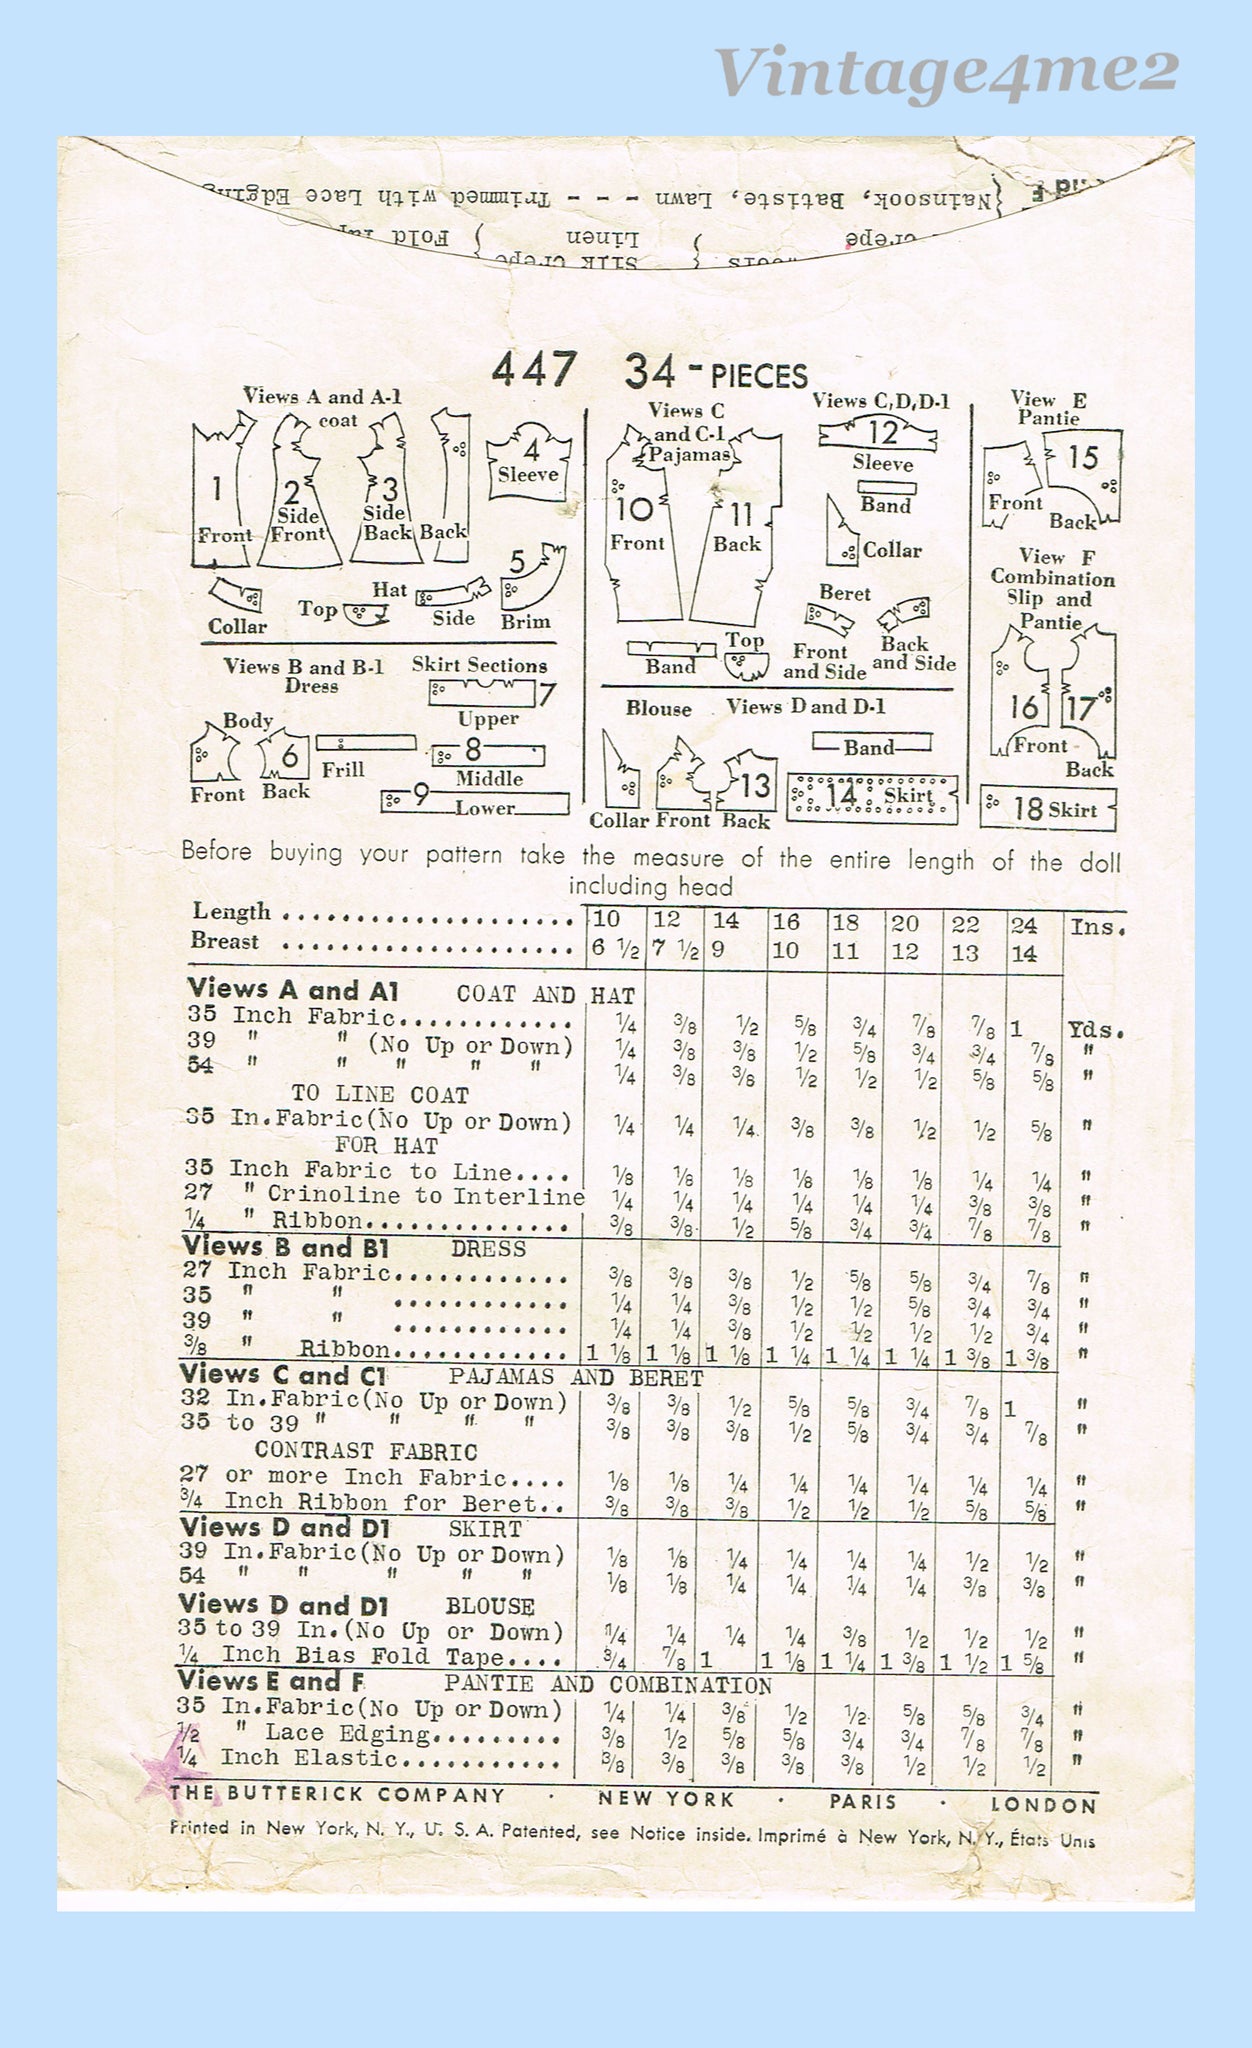 Vintage4me2
Nainsook, Batiste, Lawn - - - Trimmed with Lace Edging
Crepe } Linen } Fold
Silk Crepe
447 34-PIECES
Views A and A-1
coat
1
Front
2
Side
Front
3
Side
Back
Back
4
Sleeve
Collar
Hat
Top
Side
5
Brim
Views B and B-1
Dress
Body
Front
6
Back
Frill
Skirt Sections
7
Upper
8
Middle
9
Lower
Views C
and C-1
Pajamas
10
Front
11
Back
Band
Top
Views C,D,D-1
12
Sleeve
Band
Collar
Beret
Front
and Side
Back
and Side
Blouse Views D and D-1
Collar
Front
13
Back
Band
14 Skirt
View E
Pantie
Front
15
Back
View F
Combination
Slip and
Pantie
16
Front
17
Back
18 Skirt
Before buying your pattern take the measure of the entire length of the doll
including head
Length .................... 10 12 14 16 18 20 22 24 Ins.
Breast .................... 6 1/2 7 1/2 9 10 11 12 13 14
Views A and A1 COAT AND HAT
35 Inch Fabric............ 1/4 3/8 1/2 5/8 3/4 7/8 7/8 1 Yds.
39 " " (No Up or Down) 1/4 3/8 3/8 1/2 5/8 3/4 3/4 7/8 "
54 " " " " " 1/4 3/8 3/8 1/2 1/2 1/2 5/8 5/8 "
TO LINE COAT
35 In.Fabric(No Up or Down) 1/4 1/4 1/4 3/8 3/8 1/2 1/2 5/8 "
FOR HAT
35 Inch Fabric to Line.... 1/8 1/8 1/8 1/8 1/8 1/8 1/4 1/4 "
27 " Crinoline to Interline 1/4 1/4 1/4 1/4 1/4 1/4 3/8 3/8 "
1/4 " Ribbon.............. 3/8 3/8 1/2 5/8 3/4 3/4 7/8 7/8 "
Views B and B1 DRESS
27 Inch Fabric............ 3/8 3/8 3/8 1/2 5/8 5/8 3/4 7/8 "
35 " " ............ 1/4 1/4 3/8 1/2 1/2 5/8 3/4 3/4 "
39 " " ............ 1/4 1/4 3/8 1/2 1/2 1/2 1/2 3/4 "
3/8 " Ribbon............ 1 1/8 1 1/8 1 1/8 1 1/4 1 1/4 1 1/4 1 3/8 1 3/8 "
Views C and C1 PAJAMAS AND BERET
32 In.Fabric(No Up or Down) 3/8 3/8 1/2 5/8 5/8 3/4 7/8 1 "
35 to 39 " " " " 3/8 3/8 3/8 1/2 5/8 3/4 3/4 7/8 "
CONTRAST FABRIC
27 or more Inch Fabric.... 1/8 1/8 1/4 1/4 1/4 1/4 1/4 1/4 "
3/4 Inch Ribbon for Beret.. 3/8 3/8 3/8 1/2 1/2 1/2 5/8 5/8 "
Views D and D1 SKIRT
39 In.Fabric(No Up or Down) 1/8 1/8 1/4 1/4 1/4 1/4 1/2 1/2 "
54 " " " " " 1/8 1/8 1/4 1/4 1/4 1/4 3/8 3/8 "
Views D and D1 BLOUSE
35 to 39 In.(No Up or Down) 1/4 1/4 1/4 1/4 3/8 1/2 1/2 1/2 "
1/4 Inch Bias Fold Tape.... 3/4 7/8 1 1 1/8 1 1/4 1 3/8 1 1/2 1 5/8 "
Views E and F PANTIE AND COMBINATION
35 In.Fabric(No Up or Down) 1/4 1/4 3/8 1/2 1/2 5/8 5/8 3/4 "
1/2 " Lace Edging......... 3/8 1/2 5/8 5/8 3/4 3/4 7/8 7/8 "
1/4 Inch Elastic........... 3/8 3/8 3/8 3/8 3/8 1/2 1/2 1/2 "
THE BUTTERICK COMPANY · NEW YORK · PARIS · LONDON
Printed in New York, N. Y., U. S. A. Patented, see Notice inside. Imprimé à New York, N. Y., États Unis